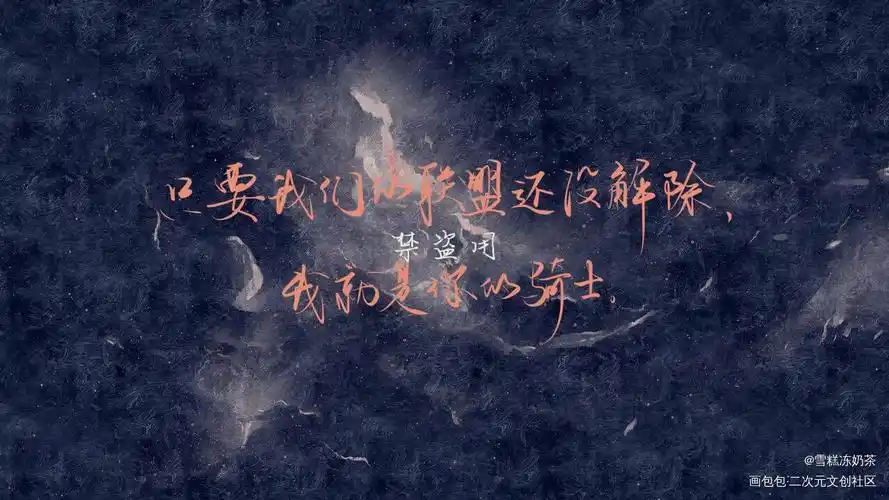 只要我们的联盟还没解除，
禁盗用
我就是你的骑士。
@雪糕冻奶茶
画包包:二次元文创社区